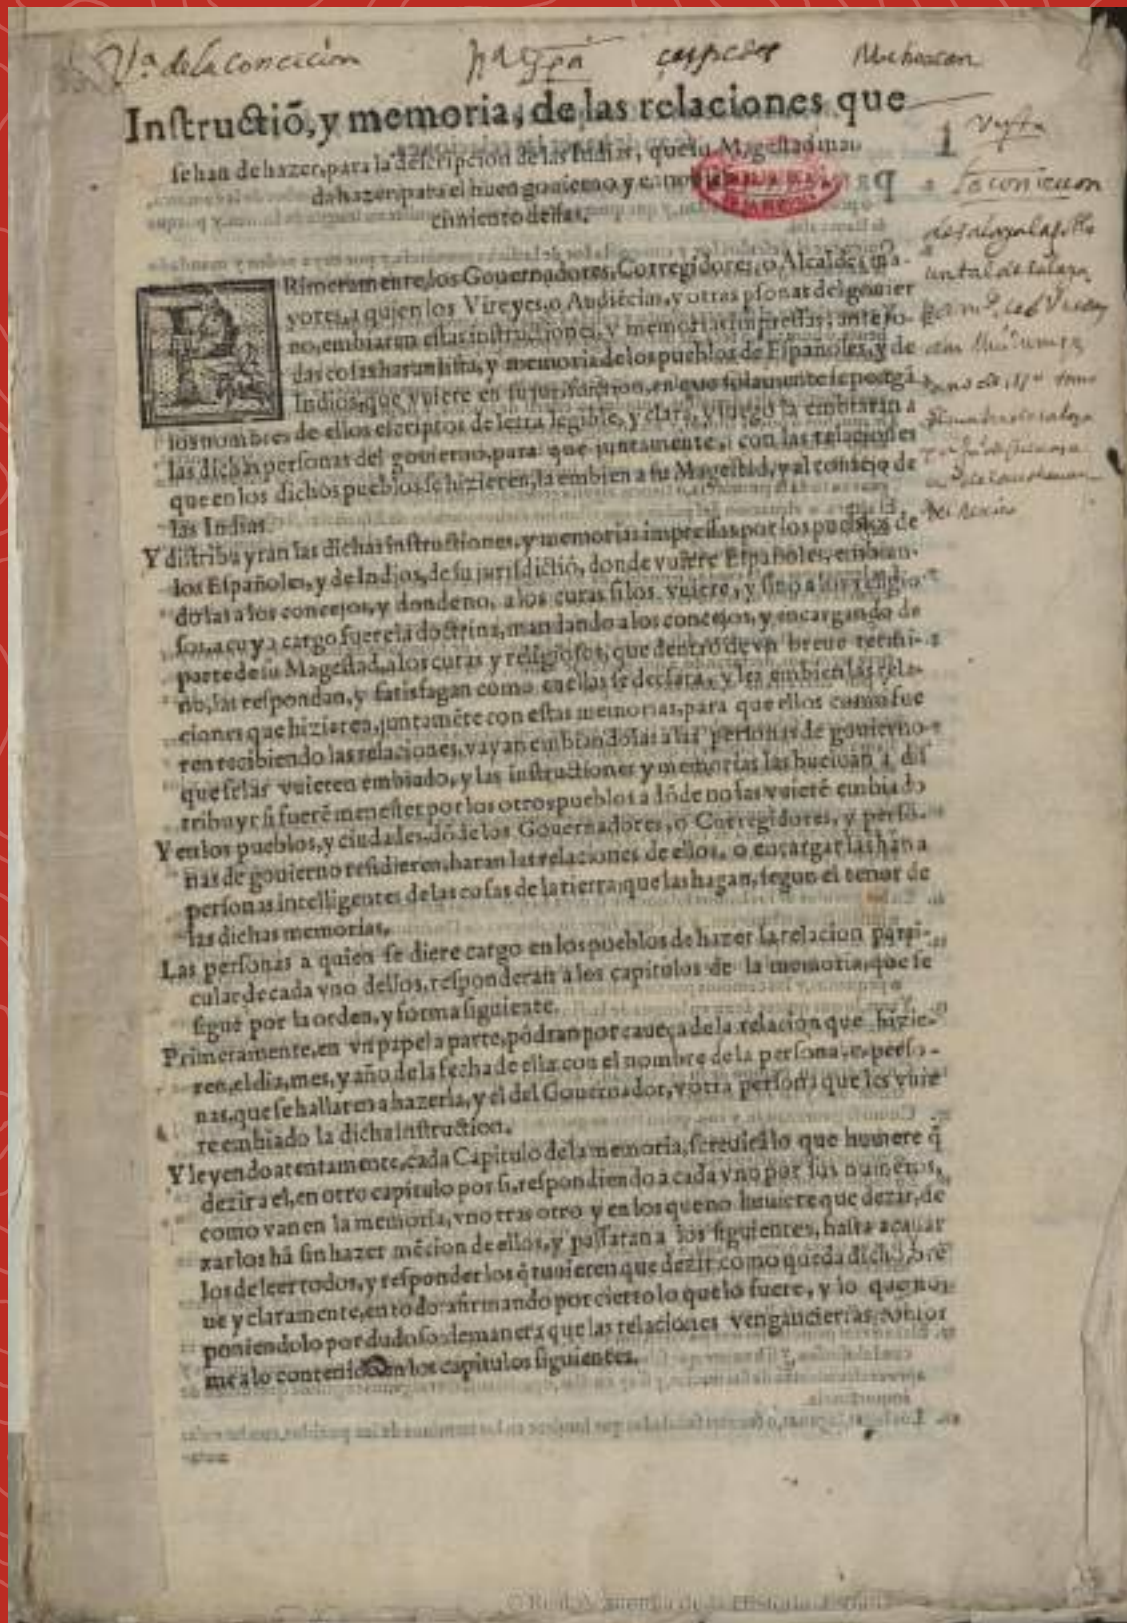 Vª. de la concicion
Michoacan
Instructiõ, y memoria, de las relaciones que
se han de hazer, para la descripcion de las Indias, que su Magestad man
da hazer, para el buen gouierno y ennoble
cimiento dellas.
1
PRimeramente, los Gouernadores, Corregidores, o Alcaldes ma-
yores, a quien los Vireyes, o Audiẽcias, y otras psonas del gouier
no, embiaren estas instructiones, y memorias impressas, ante to-
das cosas haran lista, y memoria de los pueblos de Españoles, y de
Indios, que vuiere en su jurisdicion, en que solamente se pongã
los nombres de ellos escriptos de letra legible, y clara, y luego la embiaran a
las dichas personas del gouierno, para que juntamente, con las relaciones
que en los dichos pueblos se hizieren, la embien a su Magestad, y al consejo de
las Indias.
Y distribuyran las dichas instructiones, y memorias impressas por los pueblos de
los Españoles, y de Indios, de su jurisdictiõ, donde vuiere Españoles, embian-
dolas a los concejos, y donde no, a los curas si los vuiere, y sino a los religio
sos, a cuya cargo fuere la doctrina, mandando a los concejos, y encargando de
parte de su Magestad, a los curas y religiosos, que dentro de vn breue termi-
no, las respondan, y satisfagan como en ellas se declara, y les embien las rela-
ciones que hizieren, juntamẽte con estas memorias, para que ellos como fue
ren recibiendo las relaciones, vayan embiandolas a las personas de gouierno
que se las vuieren embiado, y las instructiones y memorias las bueluan a dis
tribuyr si fuerẽ menester por los otros pueblos a dõde no las vuierẽ embiado
Y en los pueblos, y ciudades, dõde los Gouernadores, o Corregidores, y perso-
nas de gouierno residieren, haran las relaciones de ellos, o encargarlas hãn a
personas intelligentes de las cosas de la tierra, que las hagan, segun el tenor de
las dichas memorias.
Las personas a quien se diere cargo en los pueblos de hazer la relacion parti-
cular de cada vno dellos, responderan a los capitulos de la memoria, que se
sigue por la orden, y forma siguiente.
Primeramente, en vn papel a parte, pódran por caueça de la relacion que hizie-
ren, el dia, mes, y año de la fecha de ella: con el nombre de la persona, o perso-
nas, que se hallaren a hazerla, y el del Gouernador, v otra persona que les vuie
re embiado la dicha instruction.
Y leyendo atentamente, cada Capitulo de la memoria, screuirã lo que huuiere q̃
dezir a el, en otro capitulo por si, respondiendo a cada vno por sus numeros,
como van en la memoria, vno tras otro y en los que no huuiere que dezir, de
xarlos hã sin hazer mẽcion de ellos, y passaran a los siguientes, hasta acauar
los de leer todos, y responder los q̃ tuuieren que dezir: como queda dicho, bre
ue y claramente, en todo: afirmando por cierto lo que lo fuere, y lo que no:
poniendolo por dudoso: de manera que las relaciones vengan ciertas, confor
me a lo contenido en los capitulos siguientes.